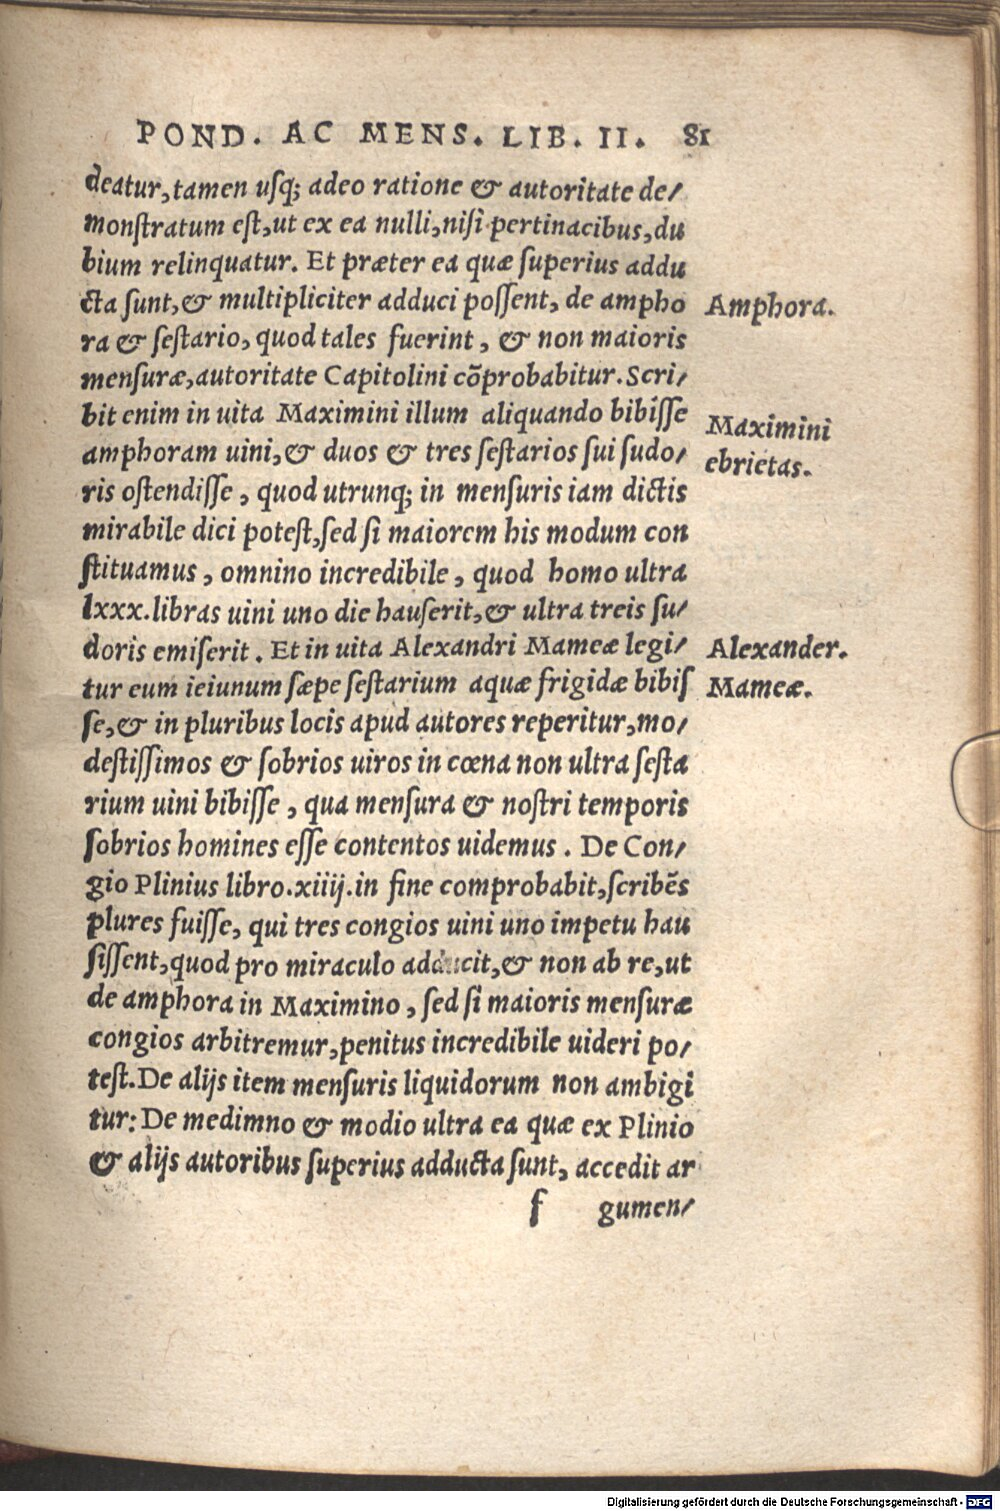 POND. AC MENS. LIB. II. 81
deatur, tamen uſq; adeo ratione & autoritate de/
monſtratum eſt, ut ex ea nulli, niſi pertinacibus, du
bium relinquatur. Et præter ea quæ ſuperius addu
cta ſunt, & multipliciter adduci poſſent, de ampho
Amphora.
ra & ſeſtario, quod tales fuerint, & non maioris
menſuræ, autoritate Capitolini cõprobabitur. Scri/
bit enim in uita Maximini illum aliquando bibiſſe
Maximini
amphoram uini, & duos & tres ſeſtarios ſui ſudo/
ebrietas.
ris oſtendiſſe, quod utrunq; in menſuris iam dictis
mirabile dici poteſt, ſed ſi maiorem his modum con
ſtituamus, omnino incredibile, quod homo ultra
lxxx. libras uini uno die hauſerit, & ultra treis ſu/
doris emiſerit. Et in uita Alexandri Mameæ legi/
Alexander.
tur eum ieiunum ſæpe ſeſtarium aquæ frigidæ bibiſ
Mameæ.
ſe, & in pluribus locis apud autores reperitur, mo/
deſtiſſimos & ſobrios uiros in cœna non ultra ſeſta
rium uini bibiſſe, qua menſura & noſtri temporis
ſobrios homines eſſe contentos uidemus. De Con/
gio Plinius libro. xiiij. in fine comprobabit, ſcribẽs
plures fuiſſe, qui tres congios uini uno impetu hau
ſiſſent, quod pro miraculo adducit, & non ab re, ut
de amphora in Maximino, ſed ſi maioris menſuræ
congios arbitremur, penitus incredibile uideri po/
teſt. De alijs item menſuris liquidorum non ambigi
tur: De medimno & modio ultra ea quæ ex Plinio
& alijs autoribus ſuperius adducta ſunt, accedit ar
f gumen/
Digitalisierung gefördert durch die Deutsche Forschungsgemeinschaft - DFG